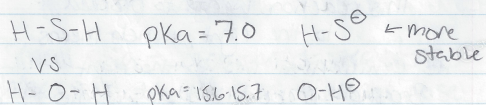 H-S-H pKa = 7.0 H-S⊖ ← more stable
vs
H-O-H pKa = 15.6-15.7 O-H⊖